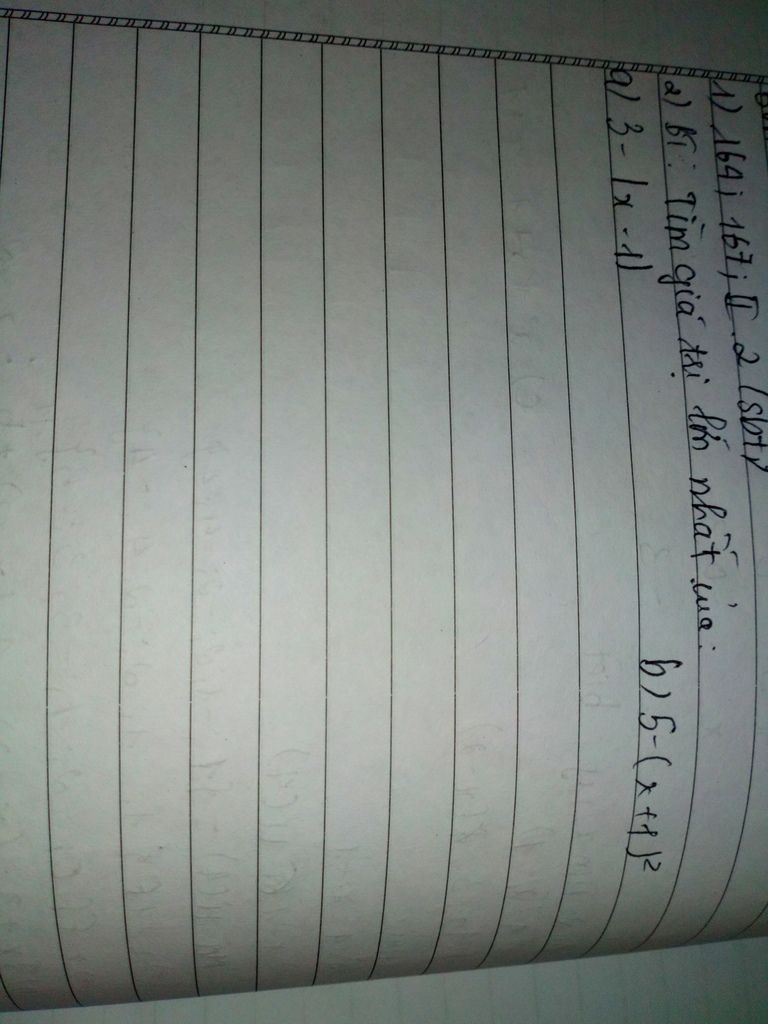 1) 164; 167; II.2 (sbt)
2) BT: Tìm giá trị lớn nhất của:
a) 3 - |x - 1| b) 5 - (x + 1)²